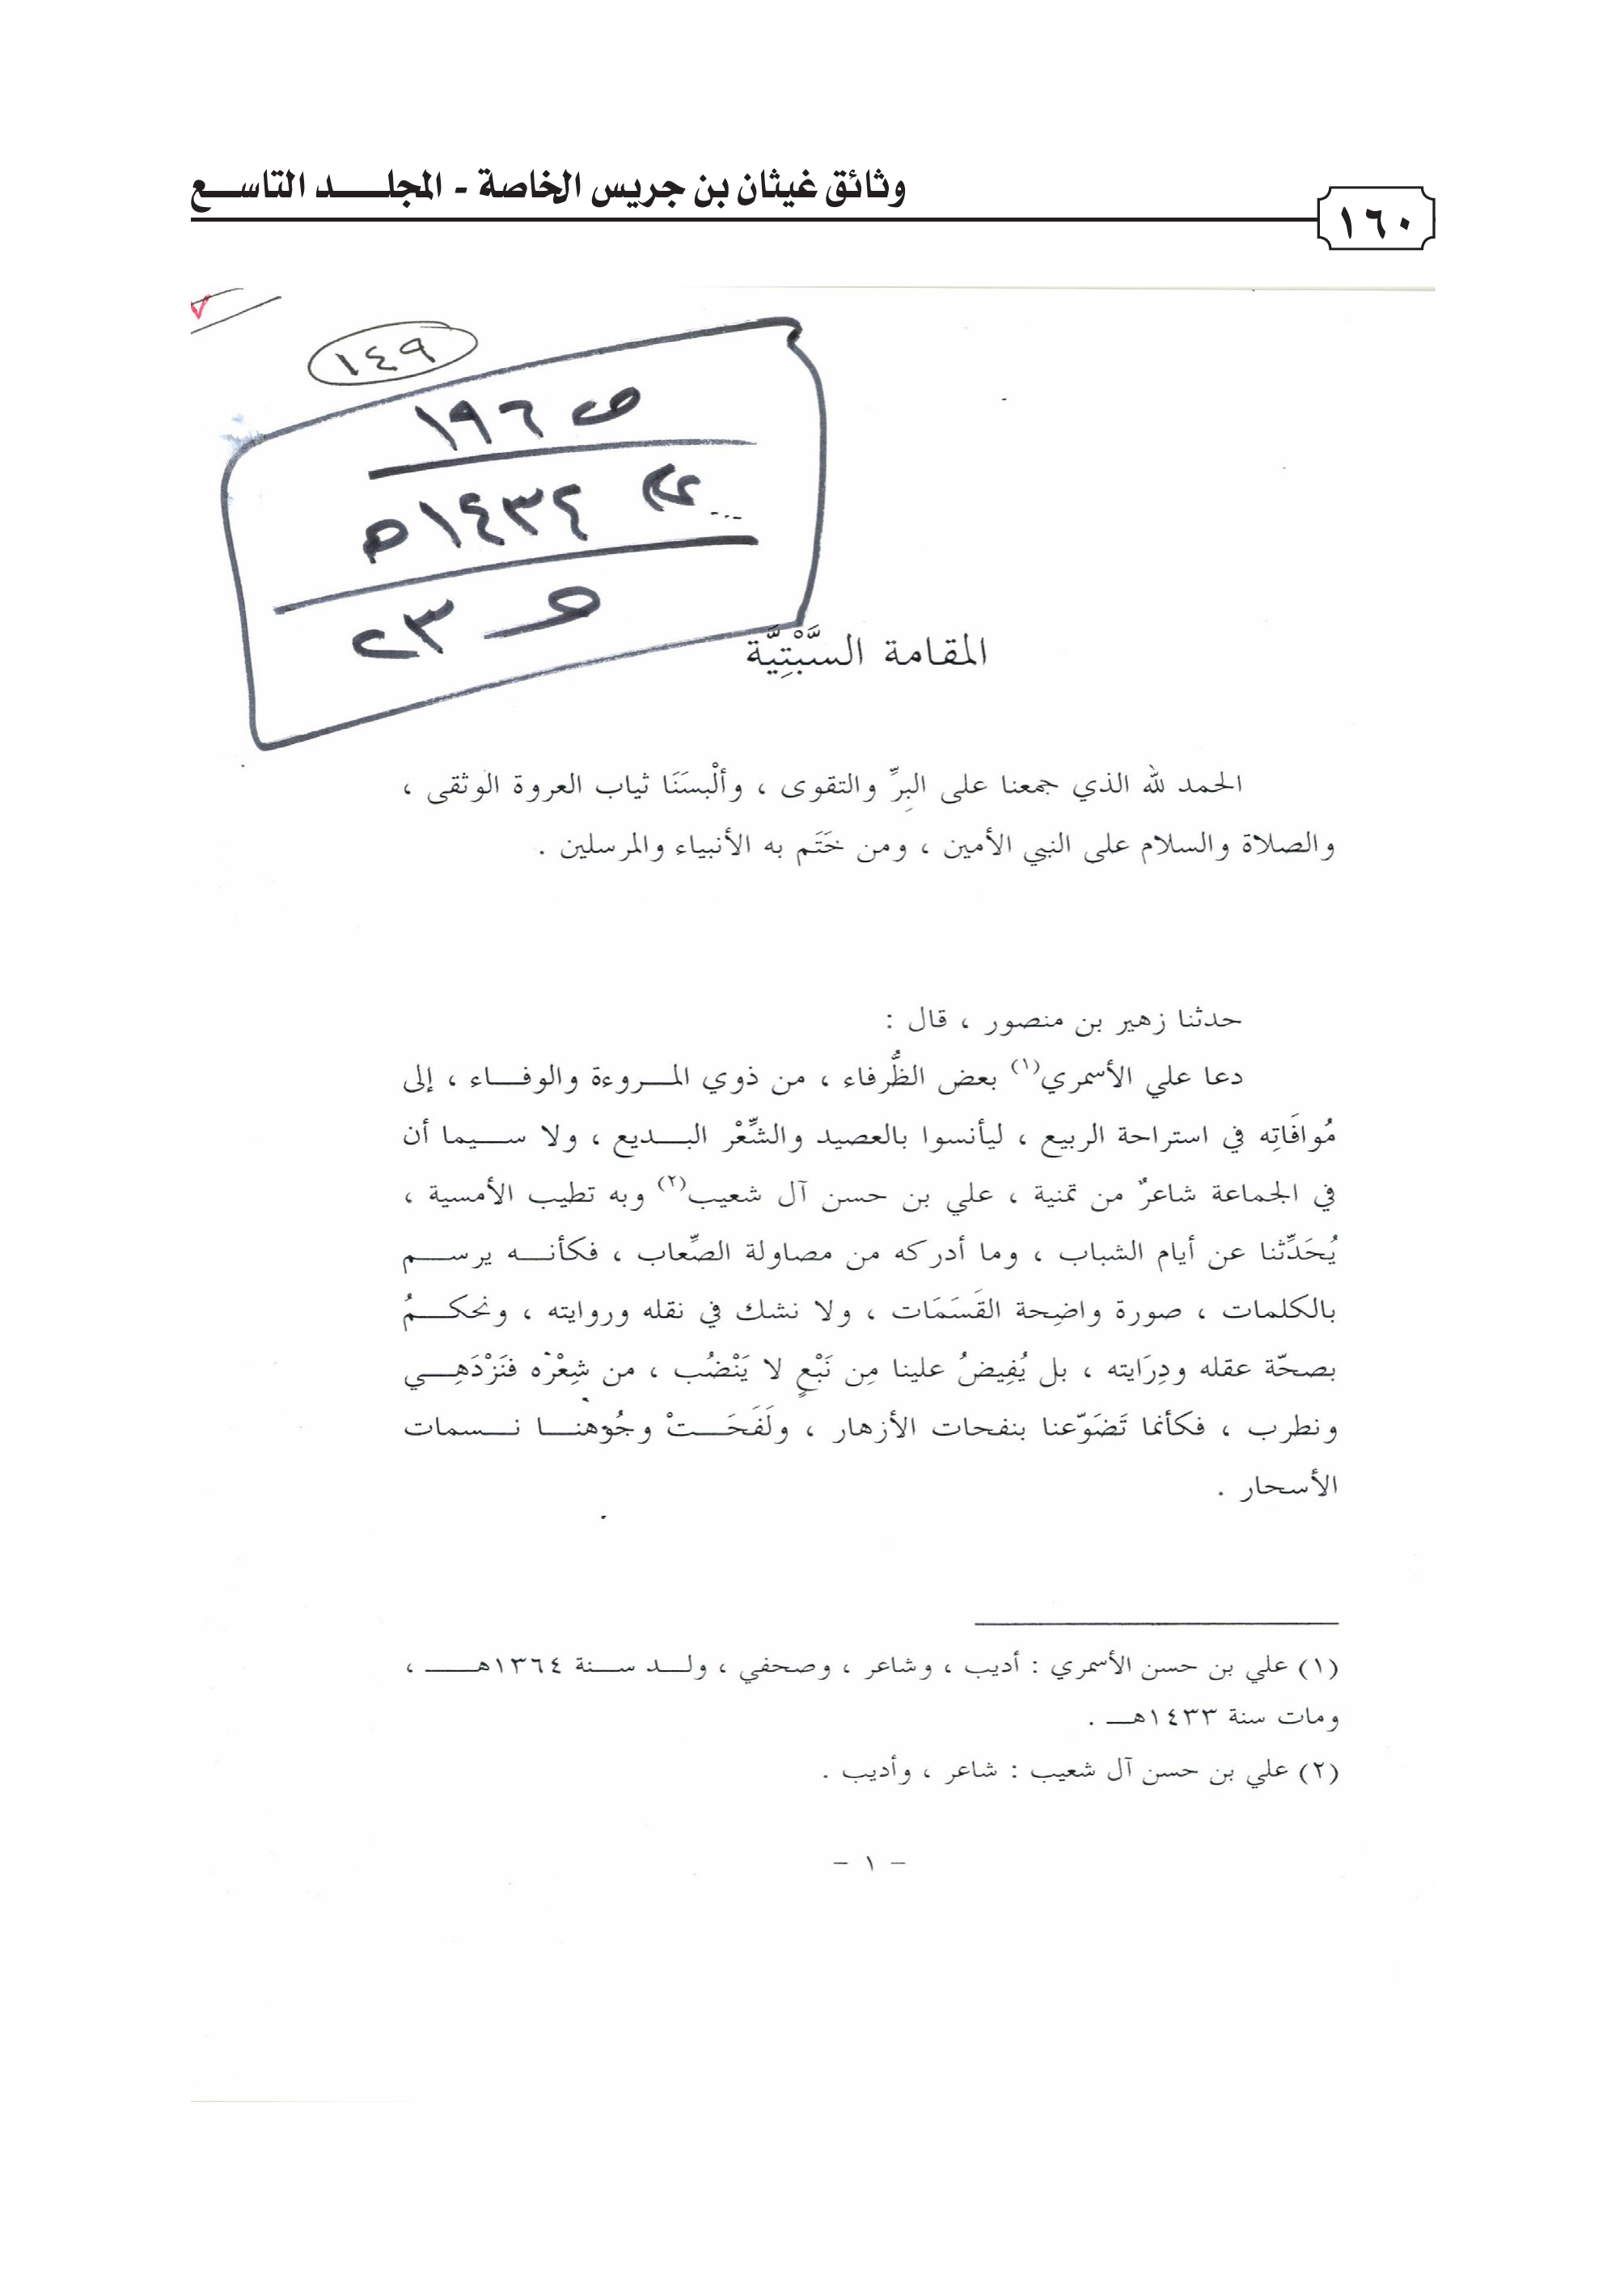 وثائق غيثان بن جريس الخاصة - المجلد التاسع
١٦٠
١٤٩
ص ١٩٦
١٤٣٤هـ
٢٣
المقامة السَّبْتِيَّة
الحمد لله الذي جمعنا على البِرِّ والتقوى ، وألْبسَنَا ثياب العروة الوثقى ،
والصلاة والسلام على النبي الأمين ، ومن خَتَم به الأنبياء والمرسلين .
حدثنا زهير بن منصور ، قال :
دعا علي الأسمري(١) بعض الظُّرفاء ، من ذوي المروءة والوفاء ، إلى
مُوافَاتِه في استراحة الربيع ، ليأنسوا بالعصيد والشِّعْر البديع ، ولا سيما أن
في الجماعة شاعرٌ من تمنية ، علي بن حسن آل شعيب(٢) وبه تطيب الأمسية ،
يُحَدِّثنا عن أيام الشباب ، وما أدركه من مصاولة الصِّعاب ، فكأنه يرسم
بالكلمات ، صورة واضِحة القَسَمَات ، ولا نشك في نقله وروايته ، ونحكمُ
بصحّة عقله ودِرَايته ، بل يُفِيضُ علينا مِن نَبْعٍ لا يَنْضُب ، من شِعْره فنَزْدَهِي
ونطرب ، فكأنما تَضَوّعنا بنفحات الأزهار ، ولَفَحَتْ وجُوهنا نسمات
الأسحار .
(١) علي بن حسن الأسمري : أديب ، وشاعر ، وصحفي ، ولد سنة ١٣٦٤هـ ،
ومات سنة ١٤٣٣هـ .
(٢) علي بن حسن آل شعيب : شاعر ، وأديب .
- ١ -